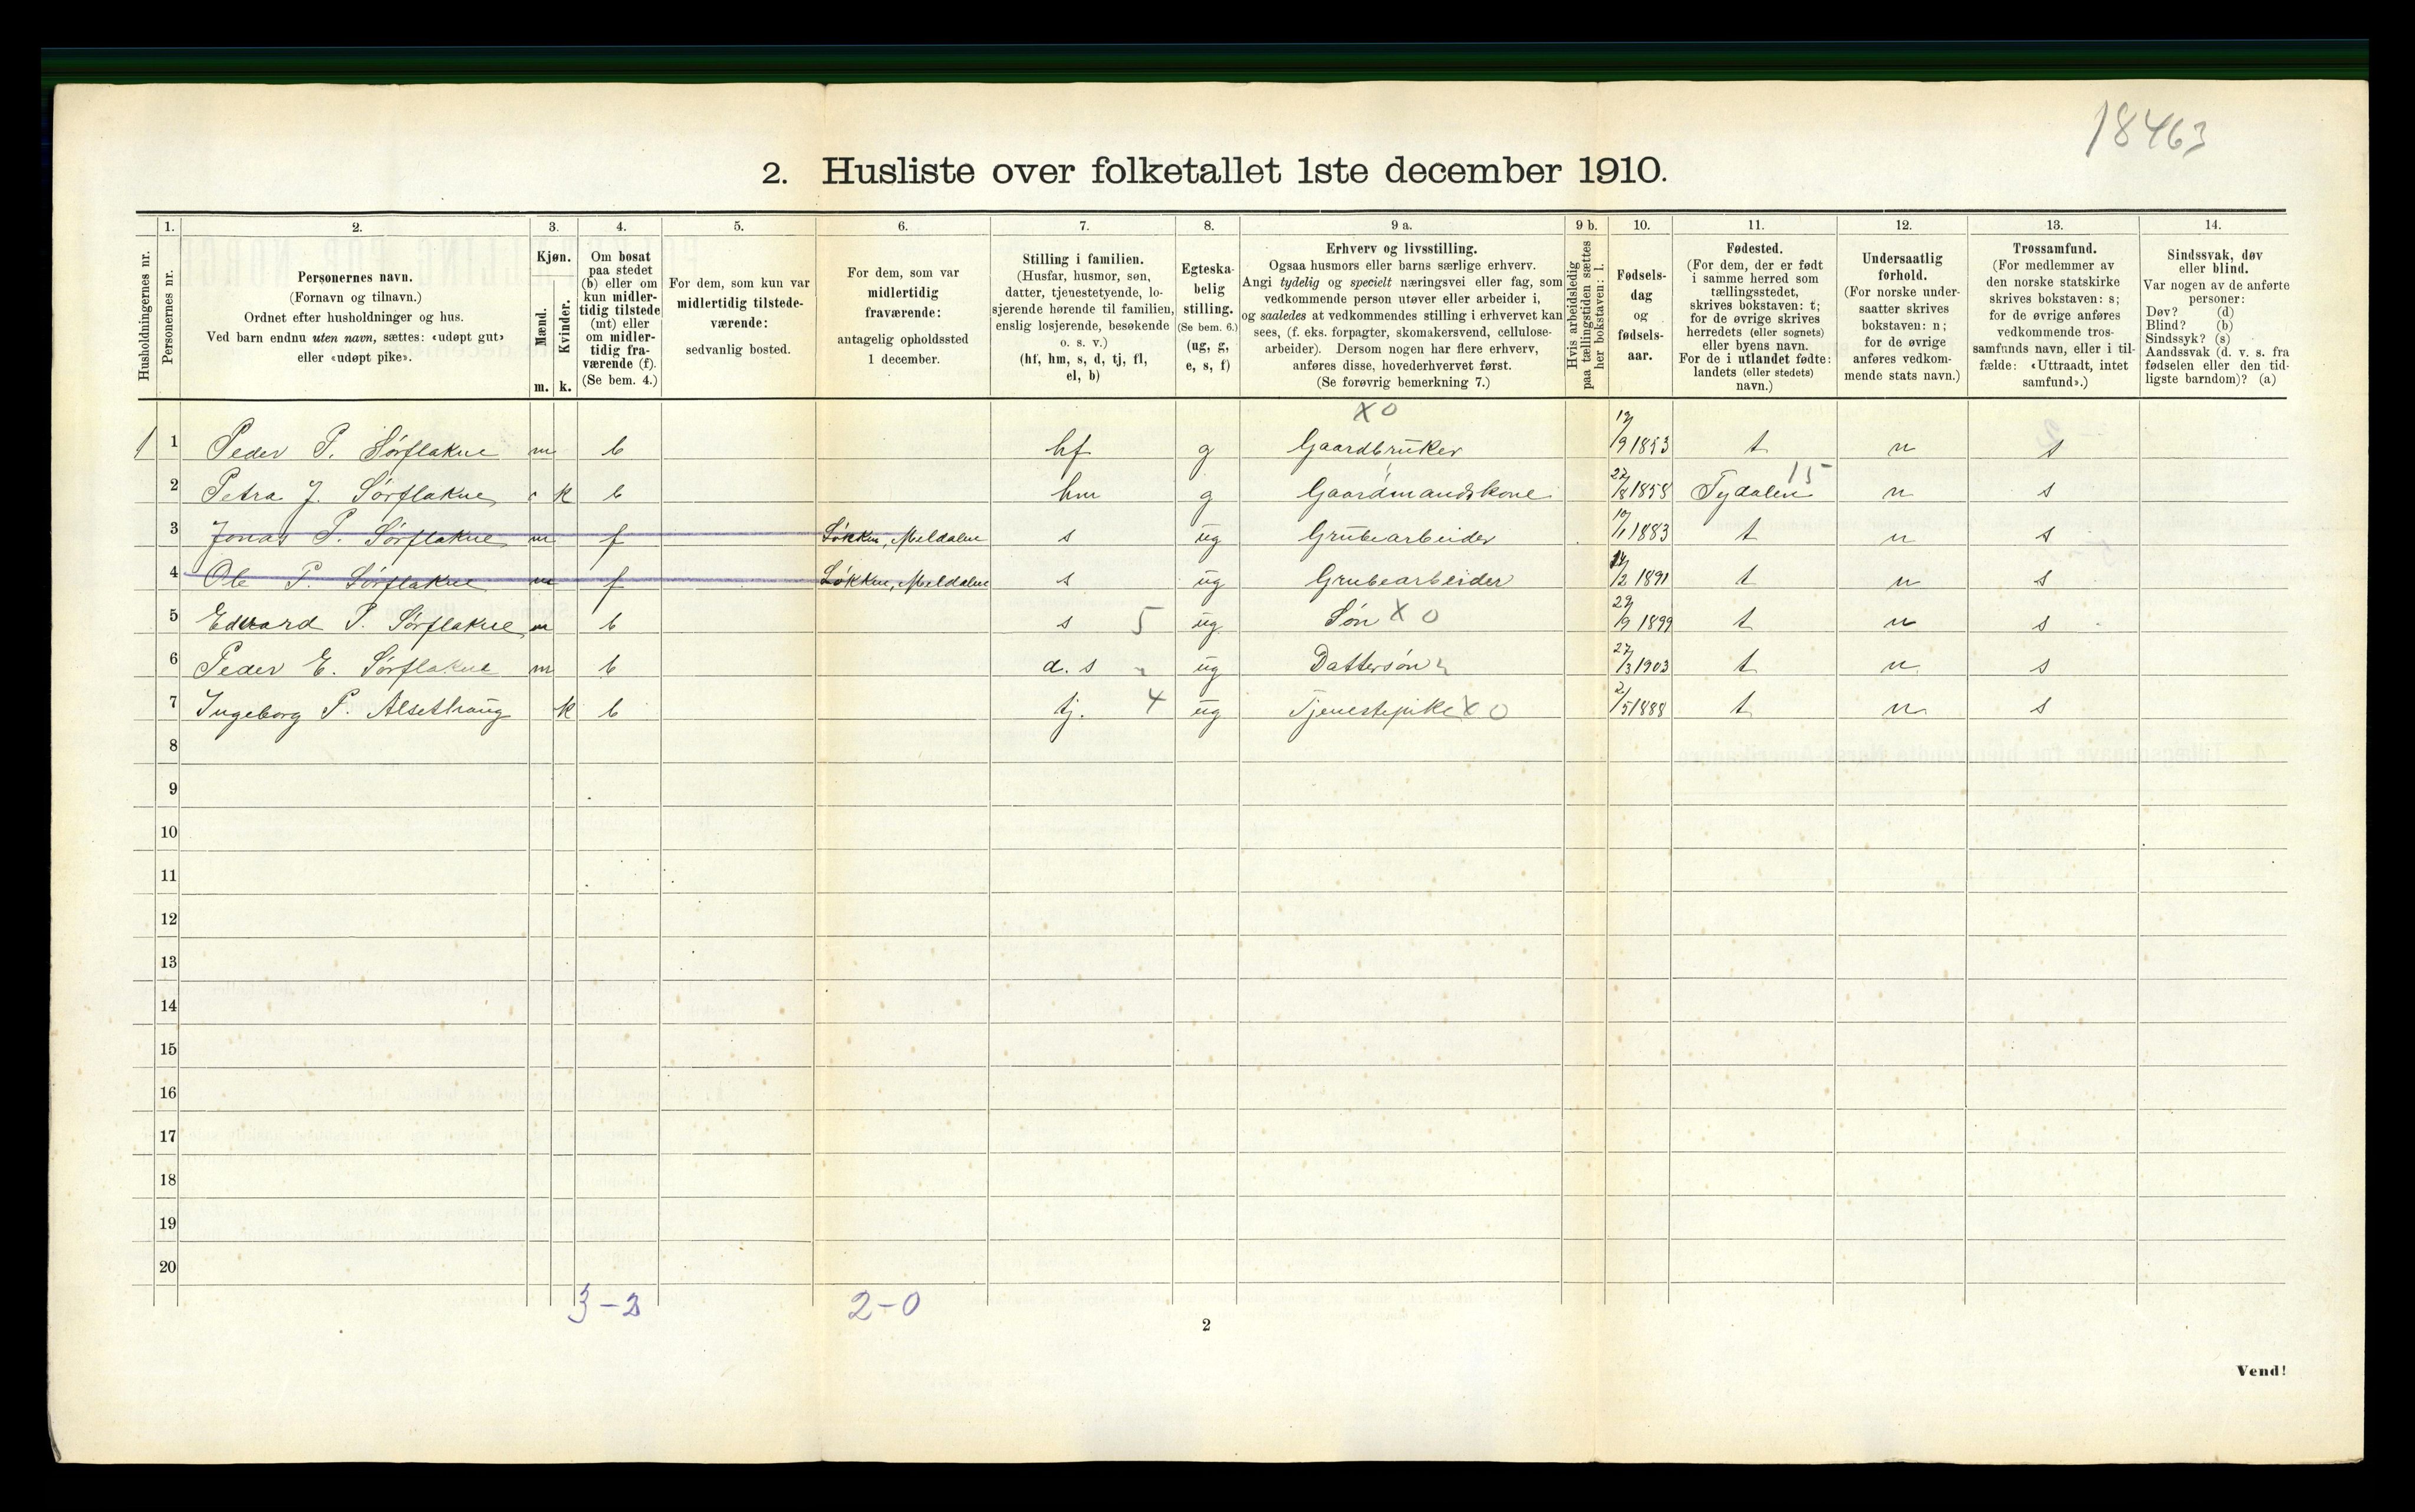 18463
2. Husliste over folketallet 1ste december 1910.
Husholdningernes nr.
1. Personernes nr.
2. Personernes navn. (Fornavn og tilnavn.) Ordnet efter husholdninger og hus. Ved barn endnu uten navn, sættes: «udøpt gut» eller «udøpt pike».
3. Kjøn. Mænd. m. Kvinder. k.
4. Om bosat paa stedet (b) eller om kun midlertidig tilstede (mt) eller om midlertidig fraværende (f). (Se bem. 4.)
5. For dem, som kun var midlertidig tilstedeværende: sedvanlig bosted.
6. For dem, som var midlertidig fraværende: antagelig opholdssted 1 december.
7. Stilling i familien. (Husfar, husmor, søn, datter, tjenestetyende, losjerende hørende til familien, enslig losjerende, besøkende o. s. v.) (hf, hm, s, d, tj, fl, el, b)
8. Egteskabelig stilling. (Se bem. 6.) (ug, g, e, s, f)
9 a. Erhverv og livsstilling. Ogsaa husmors eller barns særlige erhverv. Angi tydelig og specielt næringsvei eller fag, som vedkommende person utøver eller arbeider i, og saaledes at vedkommendes stilling i erhvervet kan sees, (f. eks. forpagter, skomakersvend, cellulosearbeider). Dersom nogen har flere erhverv, anføres disse, hovederhvervet først. (Se forøvrig bemerkning 7.)
9 b. Hvis arbeidsledig paa tællingstiden sættes her bokstaven: l.
10. Fødselsdag og fødselsaar.
11. Fødested. (For dem, der er født i samme herred som tællingsstedet, skrives bokstaven: t; for de øvrige skrives herredets (eller sognets) eller byens navn. For de i utlandet fødte: landets (eller stedets) navn.)
12. Undersaatlig forhold. (For norske undersaatter skrives bokstaven: n; for de øvrige anføres vedkommende stats navn.)
13. Trossamfund. (For medlemmer av den norske statskirke skrives bokstaven: s; for de øvrige anføres vedkommende trossamfunds navn, eller i tilfælde: «Uttraadt, intet samfund».)
14. Sindssvak, døv eller blind. Var nogen av de anførte personer: Døv? (d) Blind? (b) Sindssyk? (s) Aandssvak (d. v. s. fra fødselen eller den tidligste barndom)? (a)
X 0
1 1 Peder P. Sørflakne m b hf g Gaardbruker /9 1853 t n s
2 Petra J. Sørflakne k b hm g Gaardmandskone 22/8 1858 Tydalen 15 n s
3 Jonas P. Sørflakne m f Løkken, Meldalen s ug Grubearbeider /1 1883 t n s
4 Ole P. Sørflakne m f Løkken, Meldalen s ug Grubearbeider /2 1891 t n s
5 Edvard P. Sørflakne m b s 5 ug Søn X 0 29/9 1899 t n s
6 Peder E. Sørflakne m b d. s ug Dattersøn 27/3 1903 t n s
7 Ingeborg P. Alsethaug k b tj. 4 ug Tjenestepike X 0 2/5 1888 t n s
8
9
10
11
12
13
14
15
16
17
18
19
20
3 - 2 2 - 0
2
Vend!